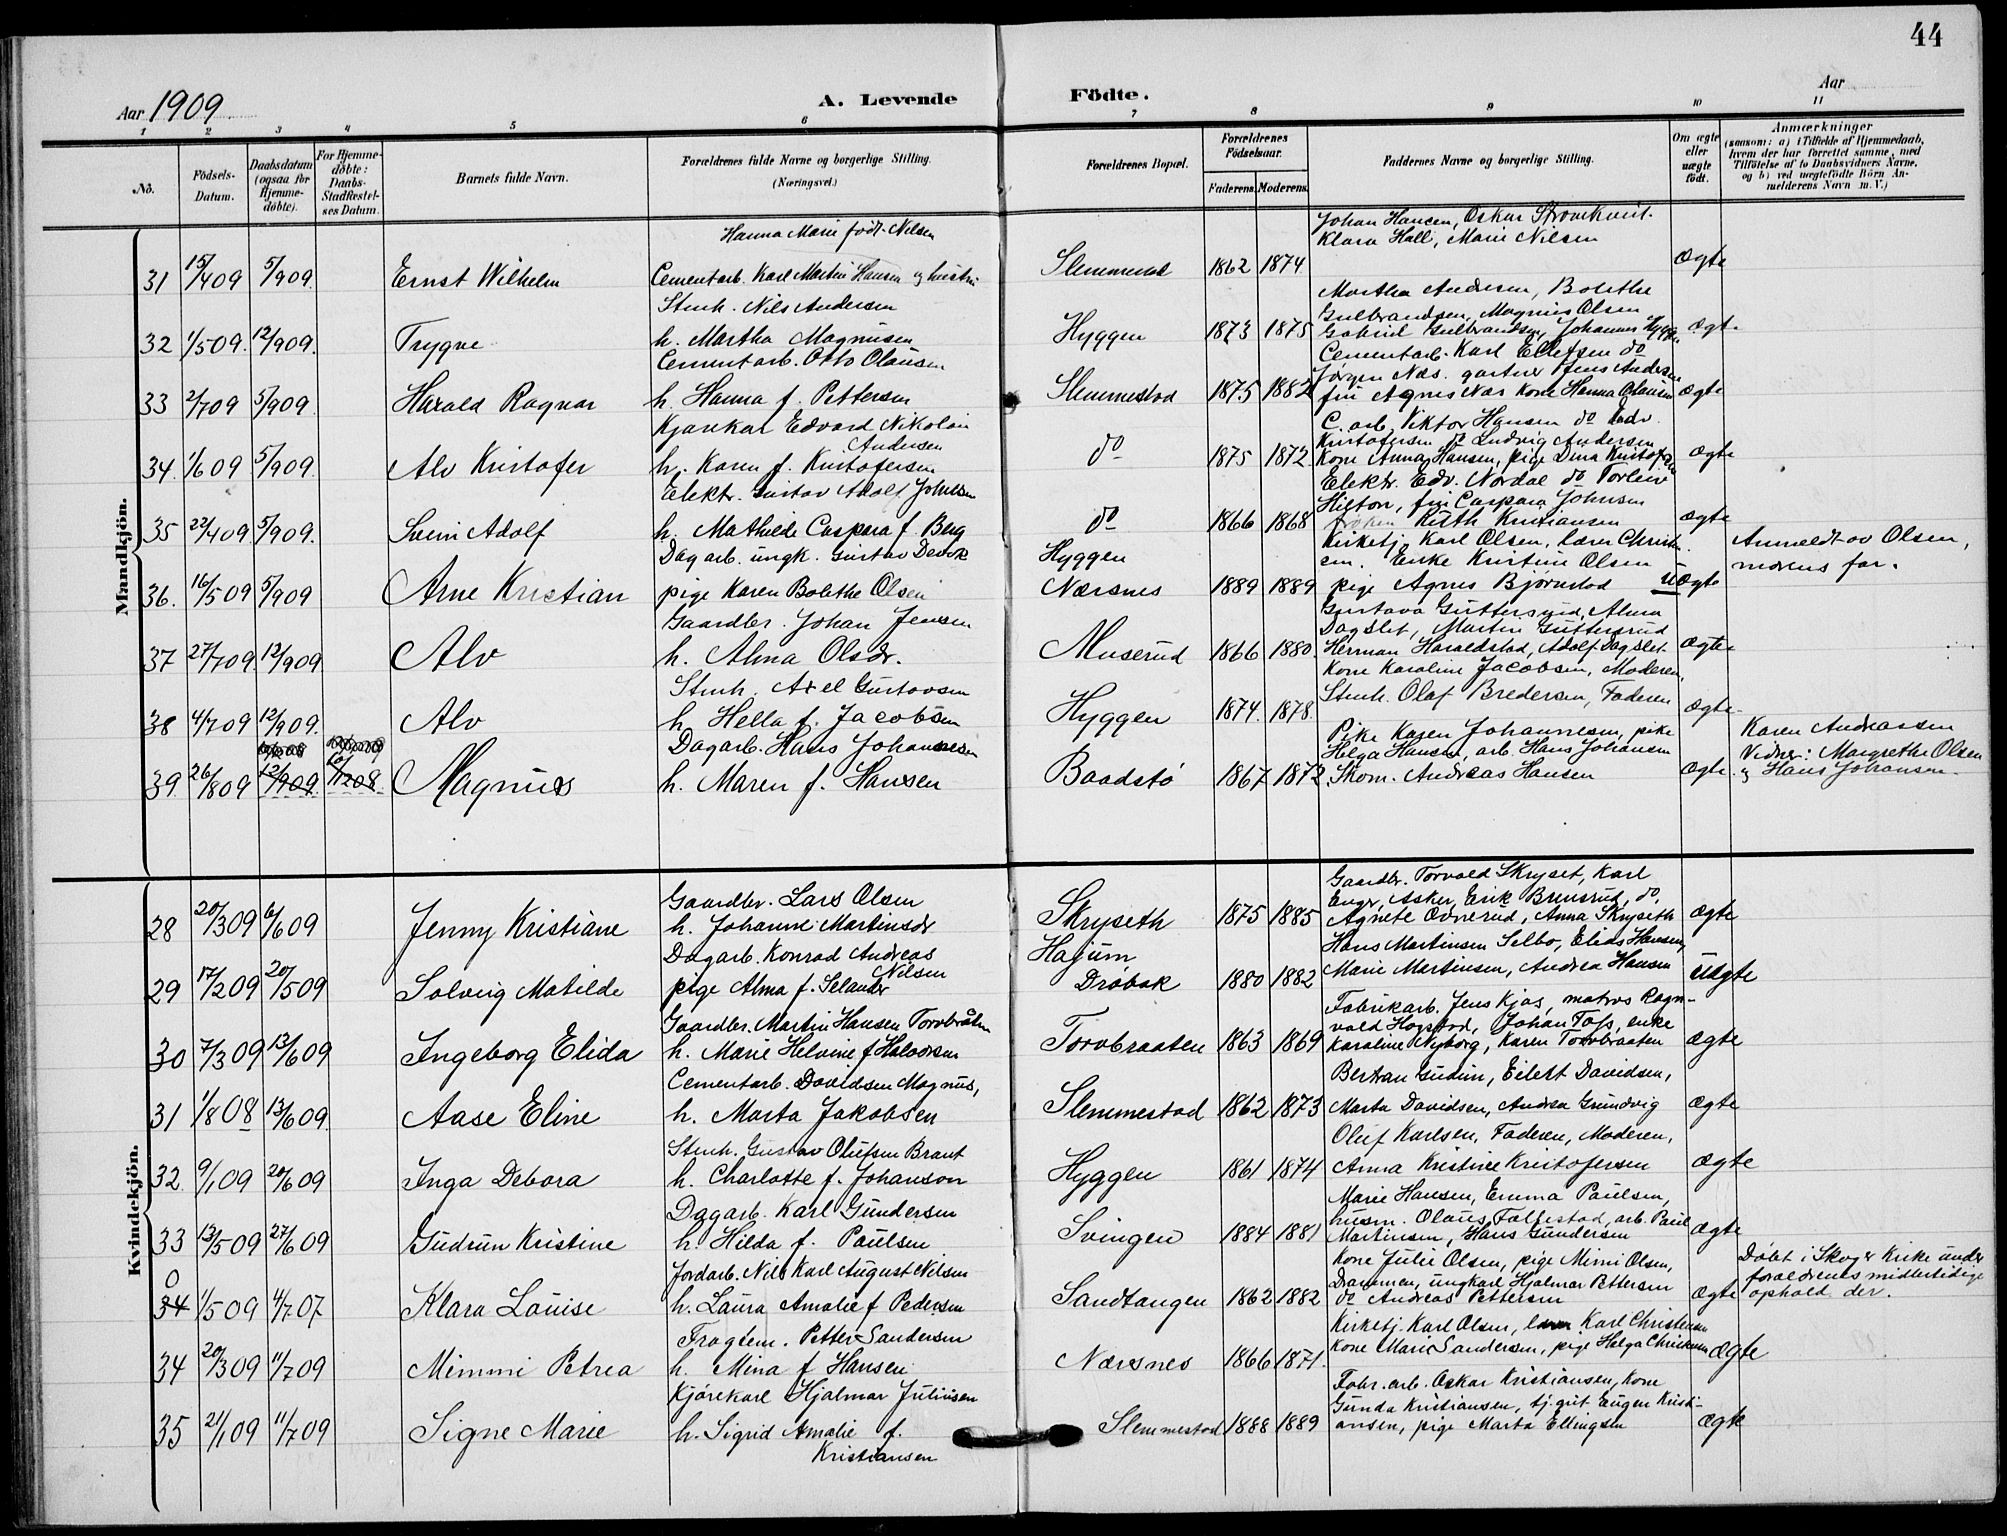 44
Aar 1909
A. Levende Födte.
Aar
1 2 3 4 5 6 7 8 9 10 11
No.
Födsels-Datum.
Daabsdatum (ogsaa for Hjemme-döbte).
For Hjemme-döbte: Daabs-Stadfestel-ses Datum.
Barnets fulde Navn.
Forældrenes fulde Navne og borgerlige Stilling. (Næringsvei.)
Forældrenes Bopæl.
Forældrenes Födselsaar. Faderens. Moderens.
Faddernes Navne og borgerlige Stilling.
Om ægte eller uægte födt.
Anmærkninger (saasom: a) i Tilfælde af Hjemmedaab, hvem der har forrettet samme, med Tilföielse af to Daabsvidners Navne, og b) ved uægtefödte Börn Anmelderens Navn m. V.)
Mandkjön.
Hanna Marie födt Nilsen
Johan Hansen, Oskar Strömkvist.
Klara Hall, Marie Nilsen
31 15/4 09 5/9 09. Ernst Wilhelm Cementarb. Karl Martin Hansen og hustru Slemmestad 1862 1874 Ægte
Stenh. Nils Andersen
Martha Andresen, Bolethe
Gulbrandsen, Magnus Olsen
32 1/5 09. 12/9 09. Trygve h. Martha Magnusen Hyggen 1873 1875 Gabriel Gulbrandsen, Johannes Hyggen ægt.
Cementarb. Otto Olausen
Cementarb. Karl Ellefsen do
Jörgen Næs. gartner Jens Andersen
33 2/7 09 5/9 09 Harald Ragnar h. Hanna f. Pettersen Slemmestad 1875 1882 fru Agnes Næs kone Hanna Olausen Ægte
Kjørekar Edvard Nikolai Andersen
C. arb. Viktor Hansen do Edv.
Kristofersen do Ludvig Andersen
34. 1/6 09 5/9 09. Alv Kristofer h. Karen f. Kristofersen do 1875 1872 Kone Anna Hansen, pige Dina Kristofersen Ægte
Elektr. Gustav Adolf Johnsen
Elektr. Edv. Nordal do Torleiv
Hilton, fru Caspara Johnsen
35 22/4 09 5/9 09. Svein Adolf h. Mathilde Caspara f Berg do 1866 1868 frøken Ruth Kristiansen Ægte
Dagarb. ungk. Gustav Devik
Hyggen
Kirketj. Karl Olsen, lærer Christen-
sen. Enke Kristine Olsen
Anmeldt av Olsen,
morens far.
36. 16/5 09 5/9 09 Arne Kristian pige Karen Bolethe Olsen Nærsnes 1889 1889 pige Agnes Bjørnstad Uægte
Gaardbr. Johan Jensen
Gustava Guttersrud, Alma
Dagslet, Martin Guttersrud
37 27/7 09 12/9 09 Alv h. Alma Olsdr. Muserud 1866 1880. Herman Haraldstad, Adolf Dagslet Ægte
Stenh. Axel Gustavsen
Kone Karoline Jacobsen, Moderen,
38 4/7 09 12/9 09. Alv h. Hella f. Jacobsen Hyggen 1874. 1878. Stenh. Olaf Bredersen, Faderen Ægte
Dagarb. Hans Johannesen
Pike Karen Johannesen, pike
Helga Hansen, arb. Hans Johansen
Karen Andreassen
Vidner: Margrethe Olsen
og Hans Johansen.
39. 26/8 09 12/9 09 10/12 08 Magnus h. Maren f. Hansen Baadstö 1867 1872. Skom. Andreas Hansen Ægte
Kvindekjön.
Gaardbr. Lars Olsen
Gaardbr. Torvald Skryset, Karl
Enger, Asker, Erik Brensrud, do.
28 20/3 09 6/6 09 Jenny Kristiane h. Johanne Martinsdr Skryseth 1875 1885 Agnete Ovnerud, Anna Skryseth Ægte
Dagarb. Konrad Andreas Nilsen
Hajum
Hans Martinsen Selbo, Elias Hansen,
29 17/2 09 20/5 09 Solveig Matilde pige Alma f. Selander Dröbak 1880 1882 Marie Martinsen, Andrea Hansen Uægte
Gaardbr. Martin Hansen Torvbråten
Fabrikarb. Jens Kjos, matros Ragn-
vald Hogstad, Johan Tofs, enke
30 7/3 09 13/6 09 Ingeborg Elida h. Marie Helvine f Halvorsen Torvbraaten 1863 1869 Karoline Nyborg, Karen Torvbraaten Ægte
Cementarb. Davidsen Magnus,
Bertran Gudim, Eilert Davidsen,
31 1/8 08 13/6 09. Aase Eline h. Marta Jakobsen Slemmestad 1862 1873 Marta Davidsen, Andrea Grundvig Ægte
Stenh. Gustav Olufsen Brant
Oluf Karlsen, Faderen, Moderen,
32 9/1 09 20/6 09 Inga Debora h. Charlotte f. Johanson Hyggen 1861 1874 Anna Kristine Kristofersen Ægte
Dagarb. Karl Gundersen
Marie Hansen, Emma Paulsen,
husm. Olaus Follestad, arb. Paul
33 13/5 09 27/6 09 Gudrun Kristine h. Hilda f. Paulsen Svingen 1884 1881 Martinsen, Hans Gundersen Ægte
Jordarb. Nils Karl August Nilsen
Kone Julie Olsen, pige Mimi Olsen,
Drammen, ungkarl Hjalmar Pettersen
Döbt i Skoger Kirke under
forældrenes midlertidige
ophold der.
0
34 1/5 09 4/7 07 Klara Louise h. Laura Amalie f Pedersen Sandtangen 1862 1882 do Andreas Pettersen Ægte
Fragtem. Petter Sandersen
Kirketj. Karl Olsen, lærer Karl Christensen
34 20/3 09 11/7 09 Mimmi Petrea h. Mina f Hansen Nærsnes 1866 1871. Kone Marie Sandersen, pige Helga Christensen Ægte
Kjørekarl Hjalmar Juliusen
Fabr. arb. Oskar Kristiansen, Kone
Gunda Kristiansen, tj.gut Eugen Kristi-
35 21/1 09 11/7 09 Signe Marie h. Sigrid Amalie f. Slemmestad 1888 1889 ansen, pige Marta Ellingsen Ægte
Kristiansen